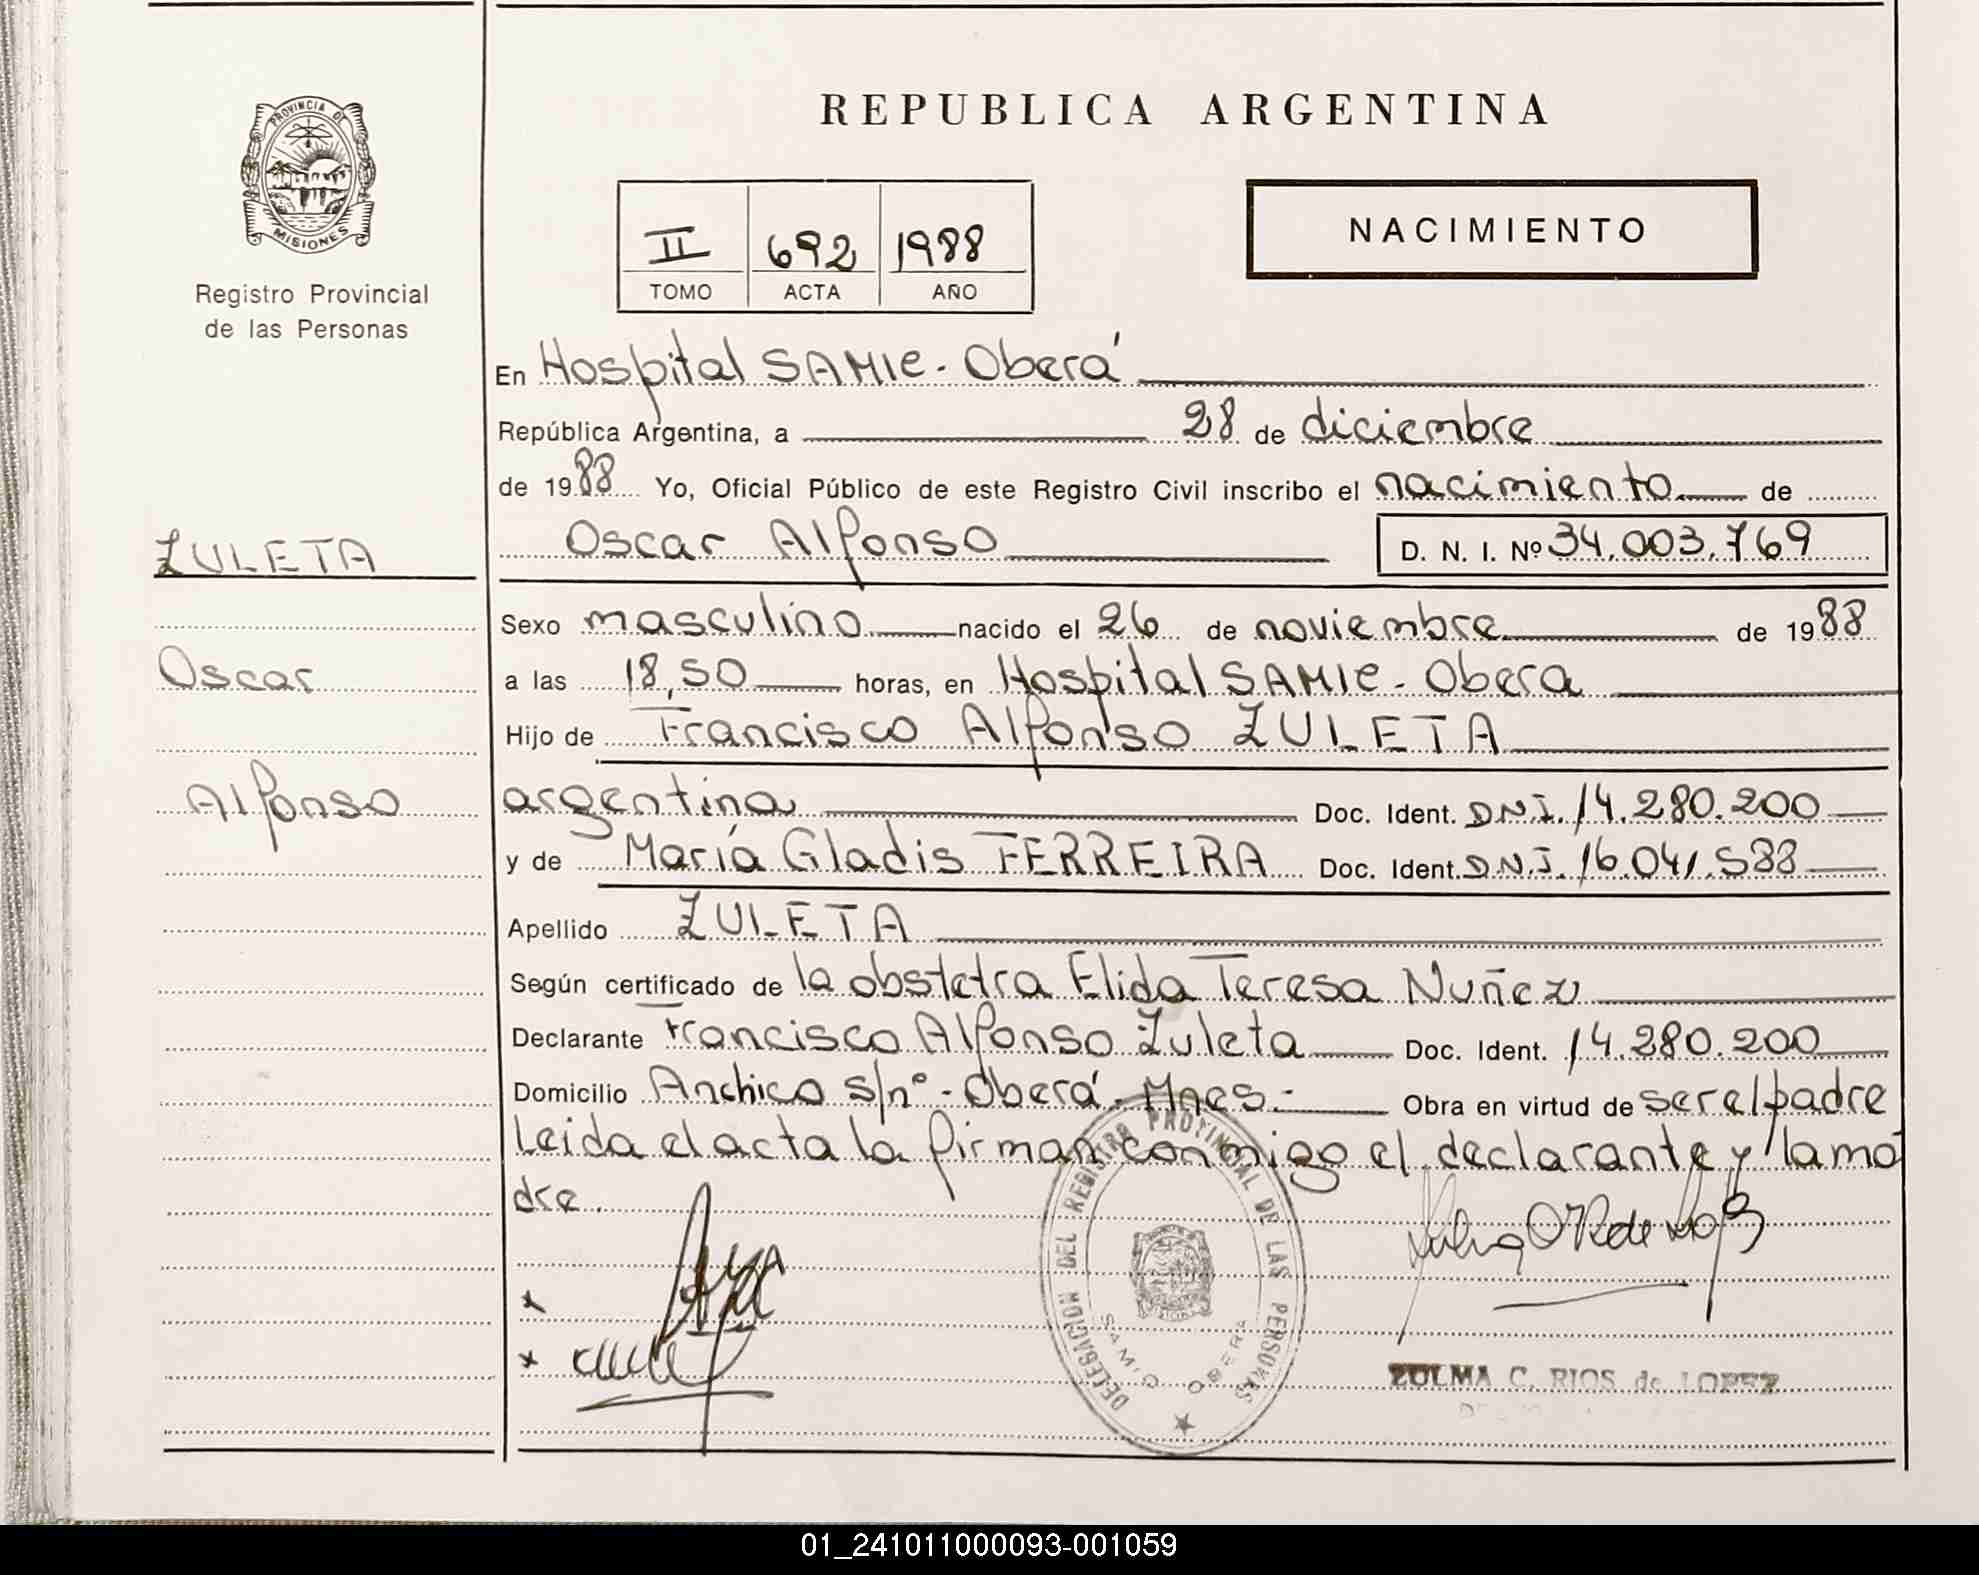 REPUBLICA ARGENTINA
PROVINCIA DE
MISIONES
Registro Provincial
de las Personas
II 692 1988
TOMO ACTA AÑO
NACIMIENTO
En Hospital SAMIc - Oberá
República Argentina, a 28 de diciembre
de 1988 Yo, Oficial Público de este Registro Civil inscribo el nacimiento de
Oscar Alfonso D. N. I. Nº 34.003.769
ZULETA
Sexo masculino nacido el 26 de noviembre de 1988
Oscar
a las 18,50 horas, en Hospital SAMIc - Obera
Hijo de Francisco Alfonso ZULETA
Alfonso
argentina Doc. Ident. DNI. 14.280.200
y de María Gladis FERREIRA Doc. Ident. DNI. 16.041.588
Apellido ZULETA
Según certificado de la obstetra Elida Teresa Nuñez
Declarante Francisco Alfonso Zuleta Doc. Ident. 14.280.200
Domicilio Anchico s/nº - Oberá - Mnes.- Obra en virtud de ser el padre
Leida el acta la firman conmigo el declarante y la ma
dre.
DELEGACION DEL REGISTRO PROVINCIAL DE LAS PERSONAS
SAMIC OBERA
ZULMA C. RIOS de LOPEZ
01_241011000093-001059